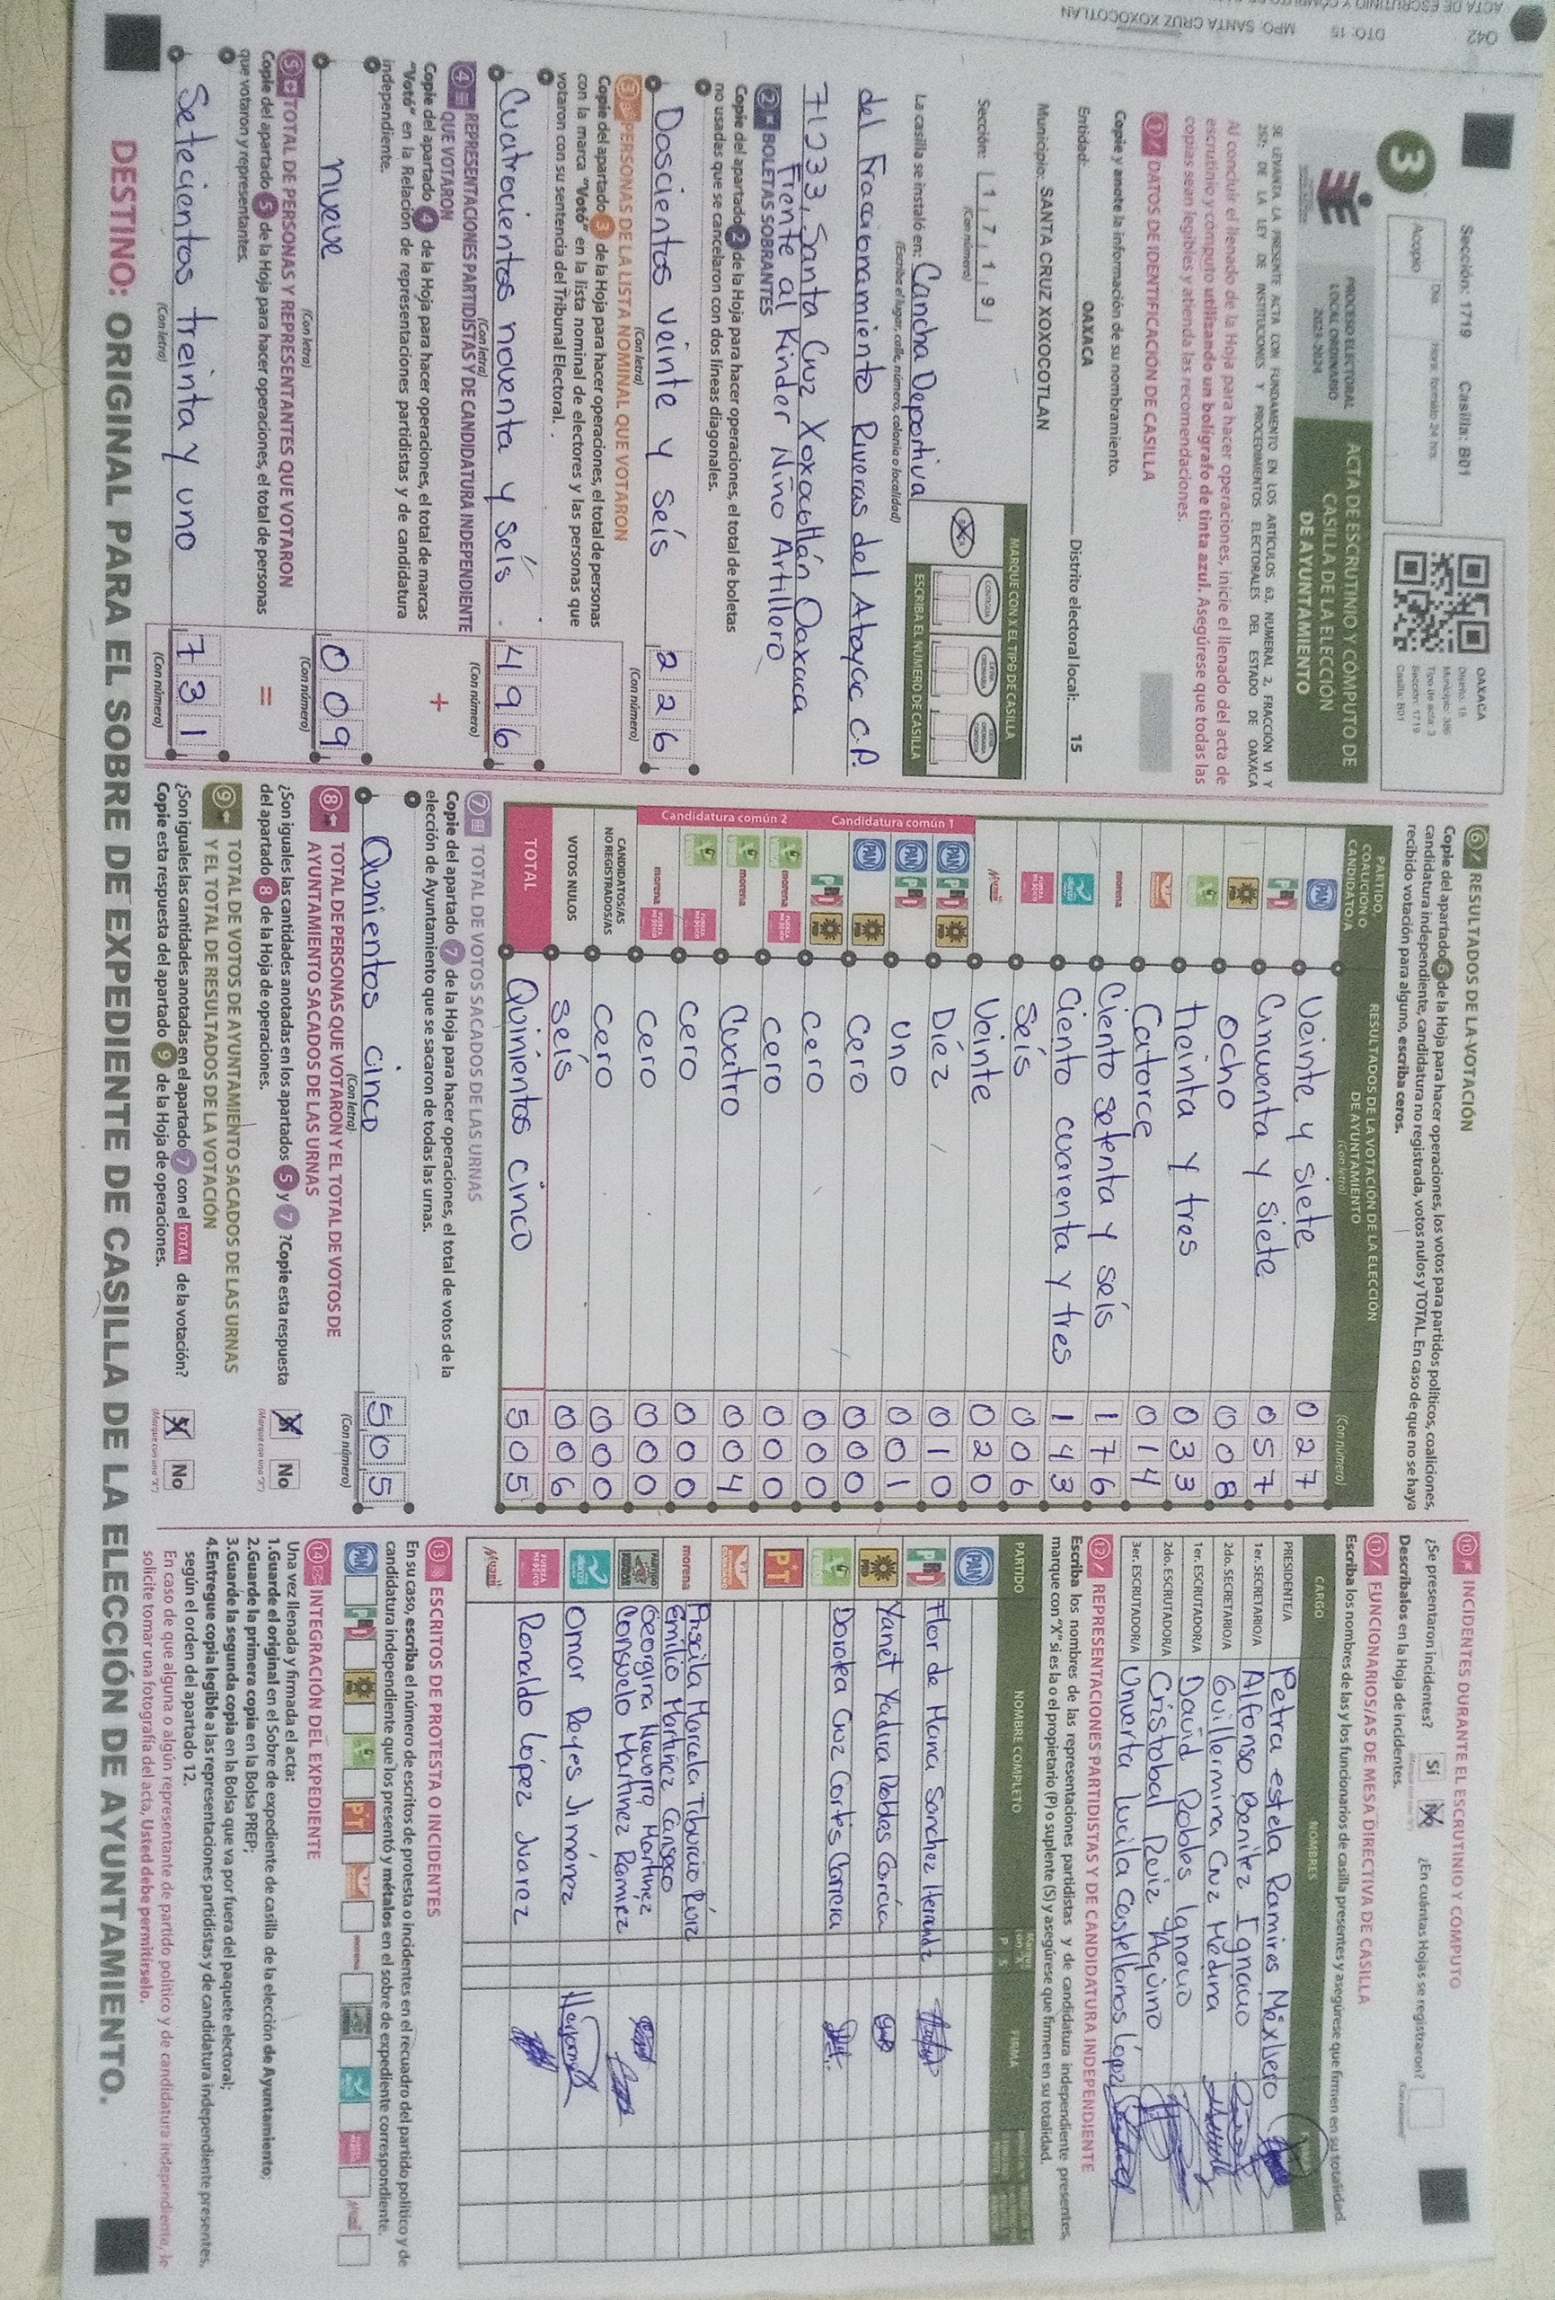 Sección: 1719 Casilla: B01
3
Acopio
Día
Hora: formato 24 hrs.
OAXACA
Distrito: 15
Municipio: 386
Tipo de acta: 3
Sección: 1719
Casilla: B01
PROCESO ELECTORAL
LOCAL ORDINARIO
2023-2024
ACTA DE ESCRUTINIO Y CÓMPUTO DE
CASILLA DE LA ELECCIÓN
DE AYUNTAMIENTO
SE LEVANTA LA PRESENTE ACTA CON FUNDAMENTO EN LOS ARTÍCULOS 63, NUMERAL 2, FRACCIÓN VI Y
252; DE LA LEY DE INSTITUCIONES Y PROCEDIMIENTOS ELECTORALES DEL ESTADO DE OAXACA
Al concluir el llenado de la Hoja para hacer operaciones, inicie el llenado del acta de
escrutinio y cómputo utilizando un bolígrafo de tinta azul. Asegúrese que todas las
copias sean legibles y atienda las recomendaciones.
1 DATOS DE IDENTIFICACIÓN DE CASILLA
Copie y anote la información de su nombramiento.
Entidad: OAXACA Distrito electoral local: 15
Municipio: SANTA CRUZ XOXOCOTLAN
Sección: 1 7 1 9
(Con número)
MARQUE CON X EL TIPO DE CASILLA
ESCRIBA EL NÚMERO DE CASILLA
La casilla se instaló en: Cancha Deportiva
(Escriba el lugar, calle, número, colonia o localidad)
del Fraccionamiento Riveras del Atoyac C.P.
71233, Santa Cruz Xoxocotlán Oaxaca
Frente al Kinder Niño Artillero
2 BOLETAS SOBRANTES
Copie del apartado 2 de la Hoja para hacer operaciones, el total de boletas
no usadas que se cancelaron con dos líneas diagonales.
Doscientos veinte y seis 2 2 6
(Con letra) (Con número)
3 PERSONAS DE LA LISTA NOMINAL QUE VOTARON
Copie del apartado 3 de la Hoja para hacer operaciones, el total de personas
con la marca "Votó" en la lista nominal de electores y las personas que
votaron con su sentencia del Tribunal Electoral.
Cuatrocientos noventa y seis 4 9 6
(Con letra) (Con número)
4 REPRESENTACIONES PARTIDISTAS Y DE CANDIDATURA INDEPENDIENTE
QUE VOTARON
Copie del apartado 4 de la Hoja para hacer operaciones, el total de marcas
"Votó" en la Relación de representaciones partidistas y de candidatura
independiente.
+
nueve 0 0 9
(Con letra) (Con número)
5 TOTAL DE PERSONAS Y REPRESENTANTES QUE VOTARON
Copie del apartado 5 de la Hoja para hacer operaciones, el total de personas
que votaron y representantes.
=
Setecientos treinta y uno 7 3 1
(Con letra) (Con número)
6 RESULTADOS DE LA VOTACIÓN
Copie del apartado 6 de la Hoja para hacer operaciones, los votos para partidos políticos, coaliciones,
candidatura independiente, candidatura no registrada, votos nulos y TOTAL. En caso de que no se haya
recibido votación para alguno, escriba ceros.
PARTIDO,
COALICIÓN O
CANDIDATO/A
RESULTADOS DE LA VOTACIÓN DE LA ELECCIÓN
DE AYUNTAMIENTO
(Con letra) (Con número)
PAN Veinte y siete 0 2 7
PRI Cincuenta y siete 0 5 7
PRD ocho 0 0 8
treinta y tres 0 3 3
Catorce 0 1 4
morena Ciento setenta y seis 1 7 6
Ciento cuarenta y tres 1 4 3
FUERZA MÉXICO Seis 0 0 6
Veinte 0 2 0
Candidatura común 1
PAN PRI PRD Diez 0 1 0
PAN PRI uno 0 0 1
PAN PRD Cero 0 0 0
PRI PRD cero 0 0 0
Candidatura común 2
morena FUERZA MÉXICO cero 0 0 0
morena Cuatro 0 0 4
FUERZA MÉXICO cero 0 0 0
morena FUERZA MÉXICO cero 0 0 0
CANDIDATOS/AS
NO REGISTRADOS/AS cero 0 0 0
VOTOS NULOS seis 0 0 6
TOTAL Quinientos cinco 5 0 5
7 TOTAL DE VOTOS SACADOS DE LAS URNAS
Copie del apartado 7 de la Hoja para hacer operaciones, el total de votos de la
elección de Ayuntamiento que se sacaron de todas las urnas.
Quinientos cinco 5 0 5
(Con letra) (Con número)
8 TOTAL DE PERSONAS QUE VOTARON Y EL TOTAL DE VOTOS DE
AYUNTAMIENTO SACADOS DE LAS URNAS
¿Son iguales las cantidades anotadas en los apartados 5 y 7 ?Copie esta respuesta
del apartado 8 de la Hoja de operaciones.
Sí No
(Marque con una "X")
9 TOTAL DE VOTOS DE AYUNTAMIENTO SACADOS DE LAS URNAS
Y EL TOTAL DE RESULTADOS DE LA VOTACIÓN
¿Son iguales las cantidades anotadas en el apartado 7 con el TOTAL de la votación?
Copie esta respuesta del apartado 9 de la Hoja de operaciones.
Sí No
(Marque con una "X")
10 INCIDENTES DURANTE EL ESCRUTINIO Y CÓMPUTO
¿Se presentaron incidentes? Sí No ¿En cuántas Hojas se registraron?
(Con número)
Descríbalos en la Hoja de incidentes.
11 FUNCIONARIOS/AS DE MESA DIRECTIVA DE CASILLA
Escriba los nombres de las y los funcionarios de casilla presentes y asegúrese que firmen en su totalidad.
CARGO NOMBRES
PRESIDENTE/A Petra estela Ramires Maxlbero
1er. SECRETARIO/A Alfonso Benitez Ignacio
2do. SECRETARIO/A Guillermina Cruz Medina
1er. ESCRUTADOR/A David Robles Ignacio
2do. ESCRUTADOR/A Cristobal Ruiz Aquino
3er. ESCRUTADOR/A Unverta lucila Castellanos lópez
12 REPRESENTACIONES PARTIDISTAS Y DE CANDIDATURA INDEPENDIENTE
Escriba los nombres de las representaciones partidistas y de candidatura independiente presentes,
marque con "X" si es la o el propietario (P) o suplente (S) y asegúrese que firmen en su totalidad.
PARTIDO NOMBRE COMPLETO P S FIRMA
PAN
PRI Flor de Maria Sanchez Hernandz
PRD Yanet Yadira Robles Garcia
Dorotea Cruz Cortés Carrera
PT
morena Priscila Marcela Tiburcio Ruiz
Emilio Martinez Canseco
Georgina Navarro Martinez
Consuelo Martinez Ramirez
Omar Reyes Jimónez
FUERZA MÉXICO Ronaldo lópez Juarez
13 ESCRITOS DE PROTESTA O INCIDENTES
En su caso, escriba el número de escritos de protesta o incidentes en el recuadro del partido político y de
candidatura independiente que los presentó y métalos en el sobre de expediente correspondiente.
PAN PRI PRD PT morena
14 INTEGRACIÓN DEL EXPEDIENTE
Una vez llenada y firmada el acta:
1.Guarde el original en el Sobre de expediente de casilla de la elección de Ayuntamiento;
2.Guarde la primera copia en la Bolsa PREP;
3.Guarde la segunda copia en la Bolsa que va por fuera del paquete electoral;
4.Entregue copia legible a las representaciones partidistas y de candidatura independiente presentes,
según el orden del apartado 12.
En caso de que alguna o algún representante de partido político y de candidatura independiente, le
solicite tomar una fotografía del acta, Usted debe permitírselo.
DESTINO: ORIGINAL PARA EL SOBRE DE EXPEDIENTE DE CASILLA DE LA ELECCIÓN DE AYUNTAMIENTO.
042
DTO: 15 MPO: SANTA CRUZ XOXOCOTLAN